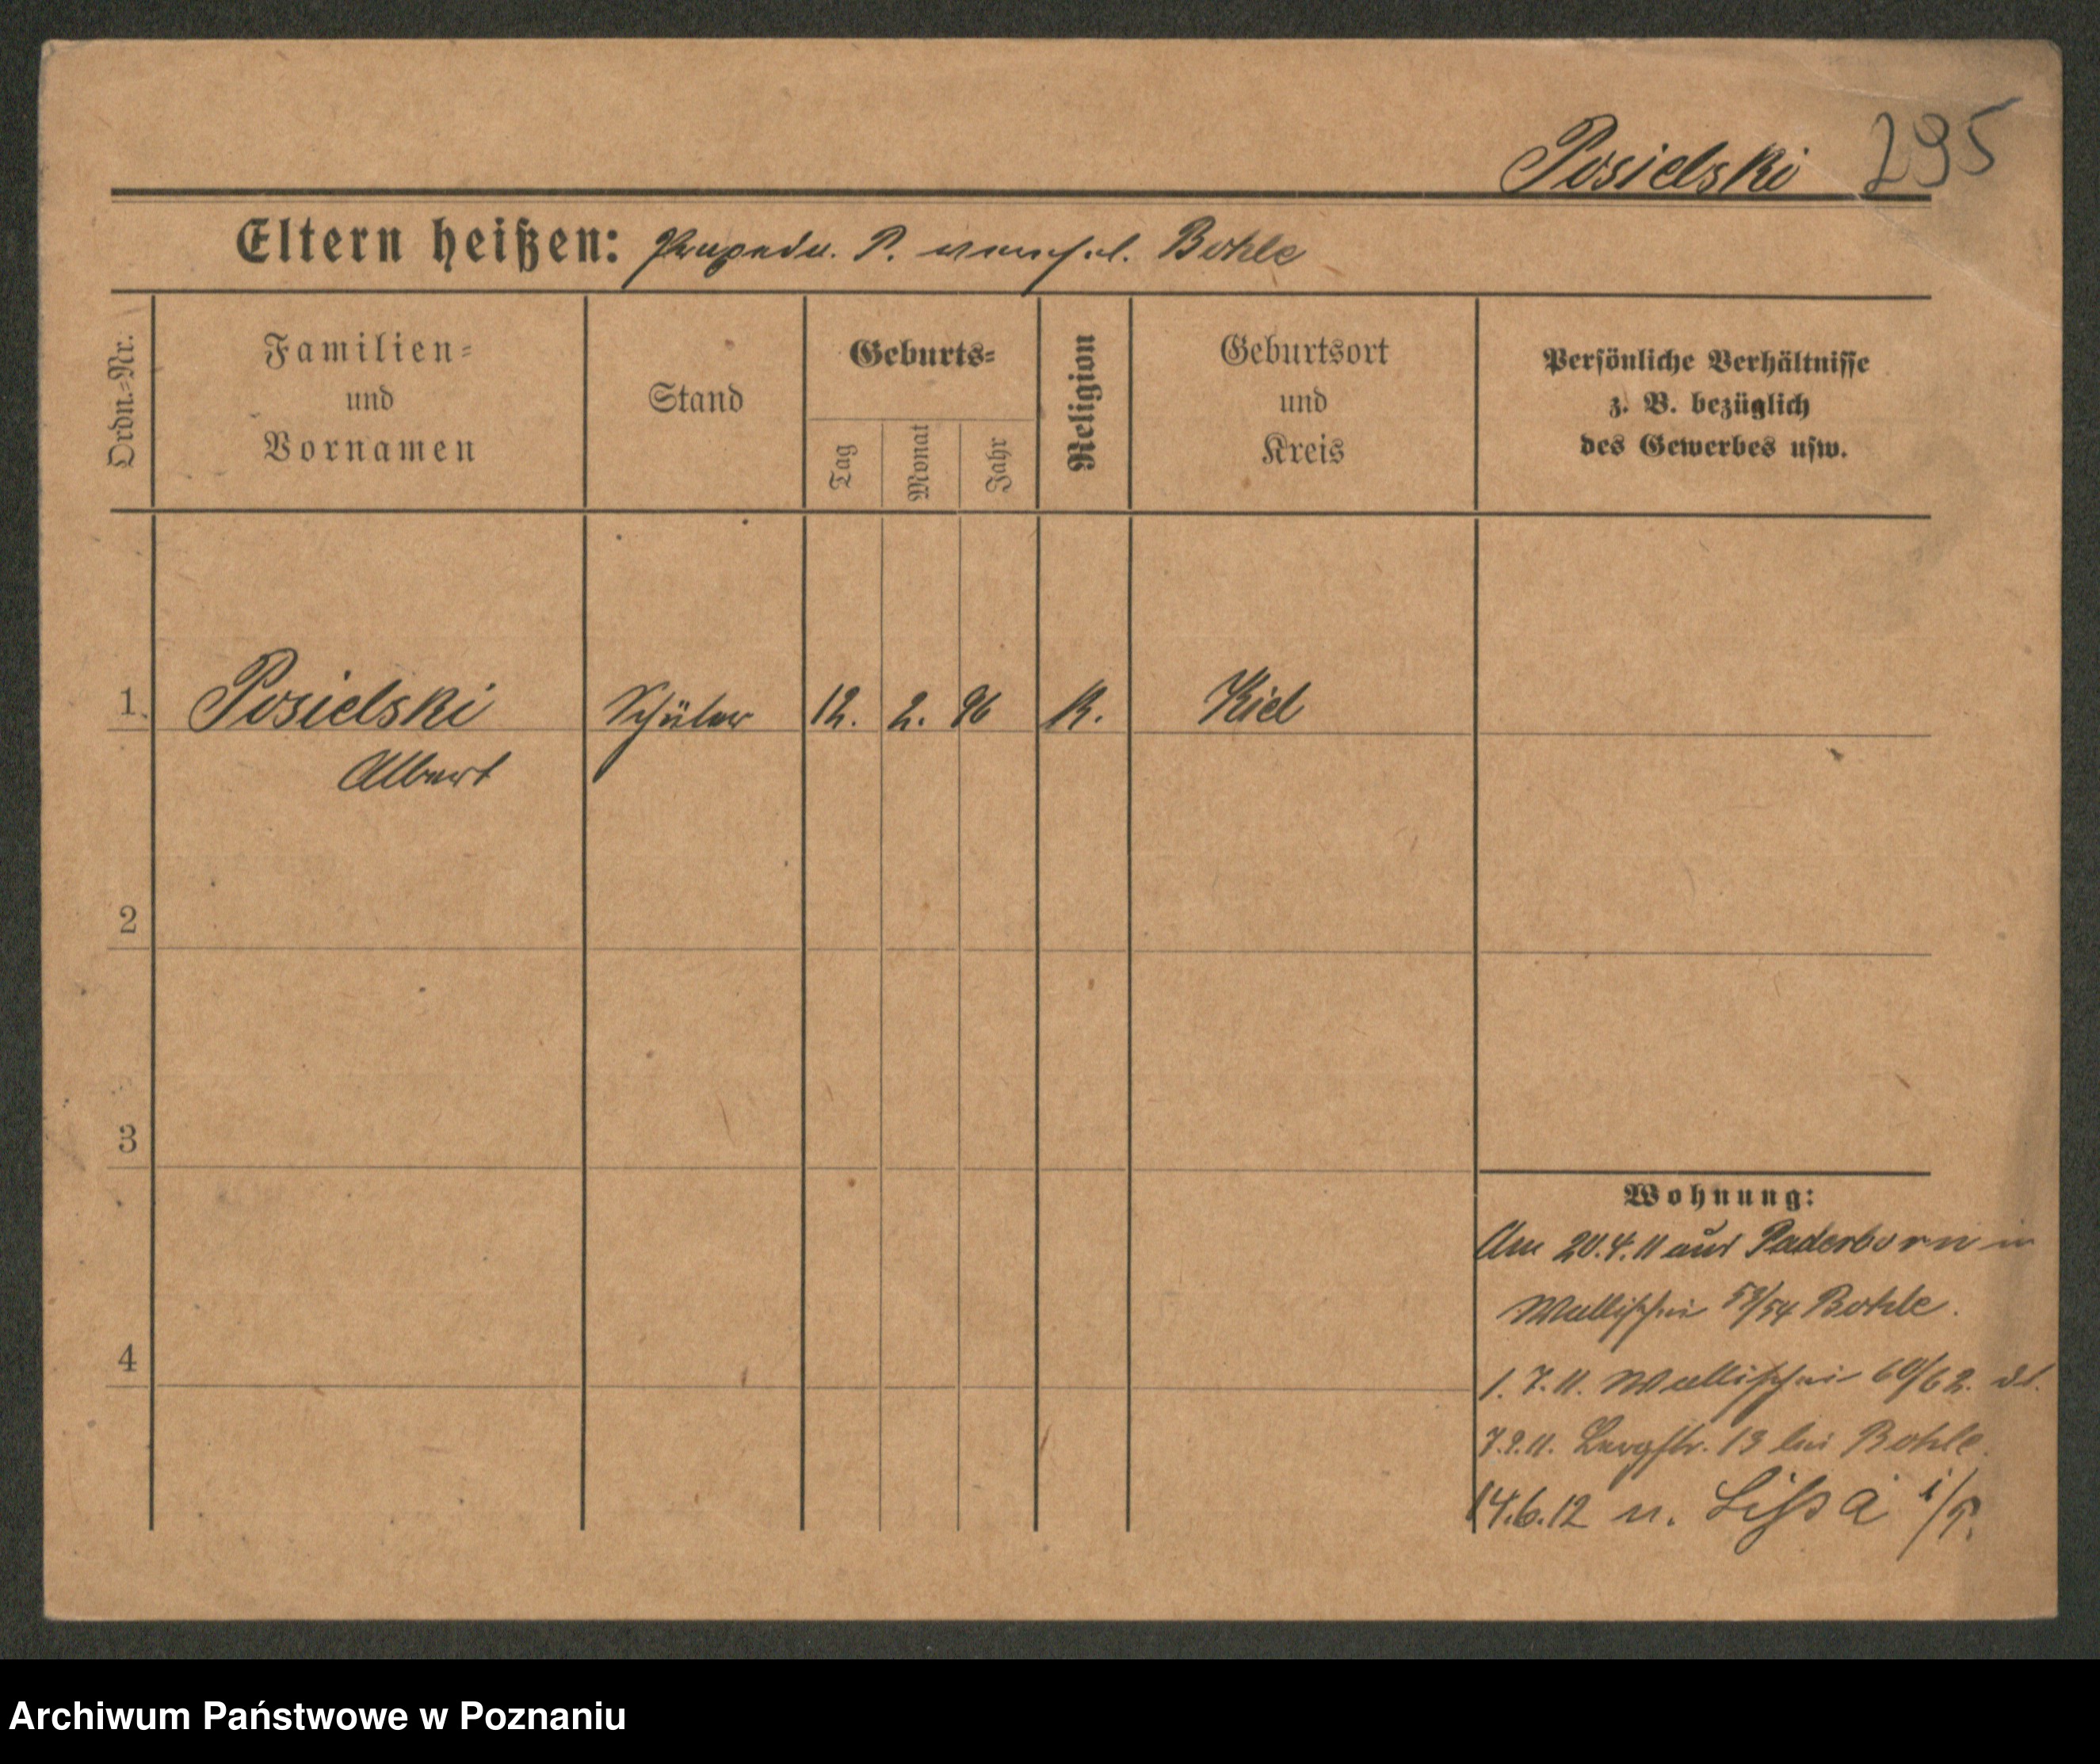 Posielski 295
Eltern heißen: P. Bohle
Ordn.=Nr.
Familien=
und
Vornamen
Stand
Geburts=
Tag
Monat
Jahr
Religion
Geburtsort
und
Kreis
Persönliche Verhältnisse
z. B. bezüglich
des Gewerbes usw.
1. Posielski Schüler 12. 2. 96 K. Kiel
Albert
2
3
4
Wohnung:
Am 20.4.11 aus Paderborn in
Wallischei 53/54 Bohle.
1.7.11. Wallischei 60/62.
11. 13 bei Bohle.
14.6.12 n. Lissa i/P.
Archiwum Państwowe w Poznaniu